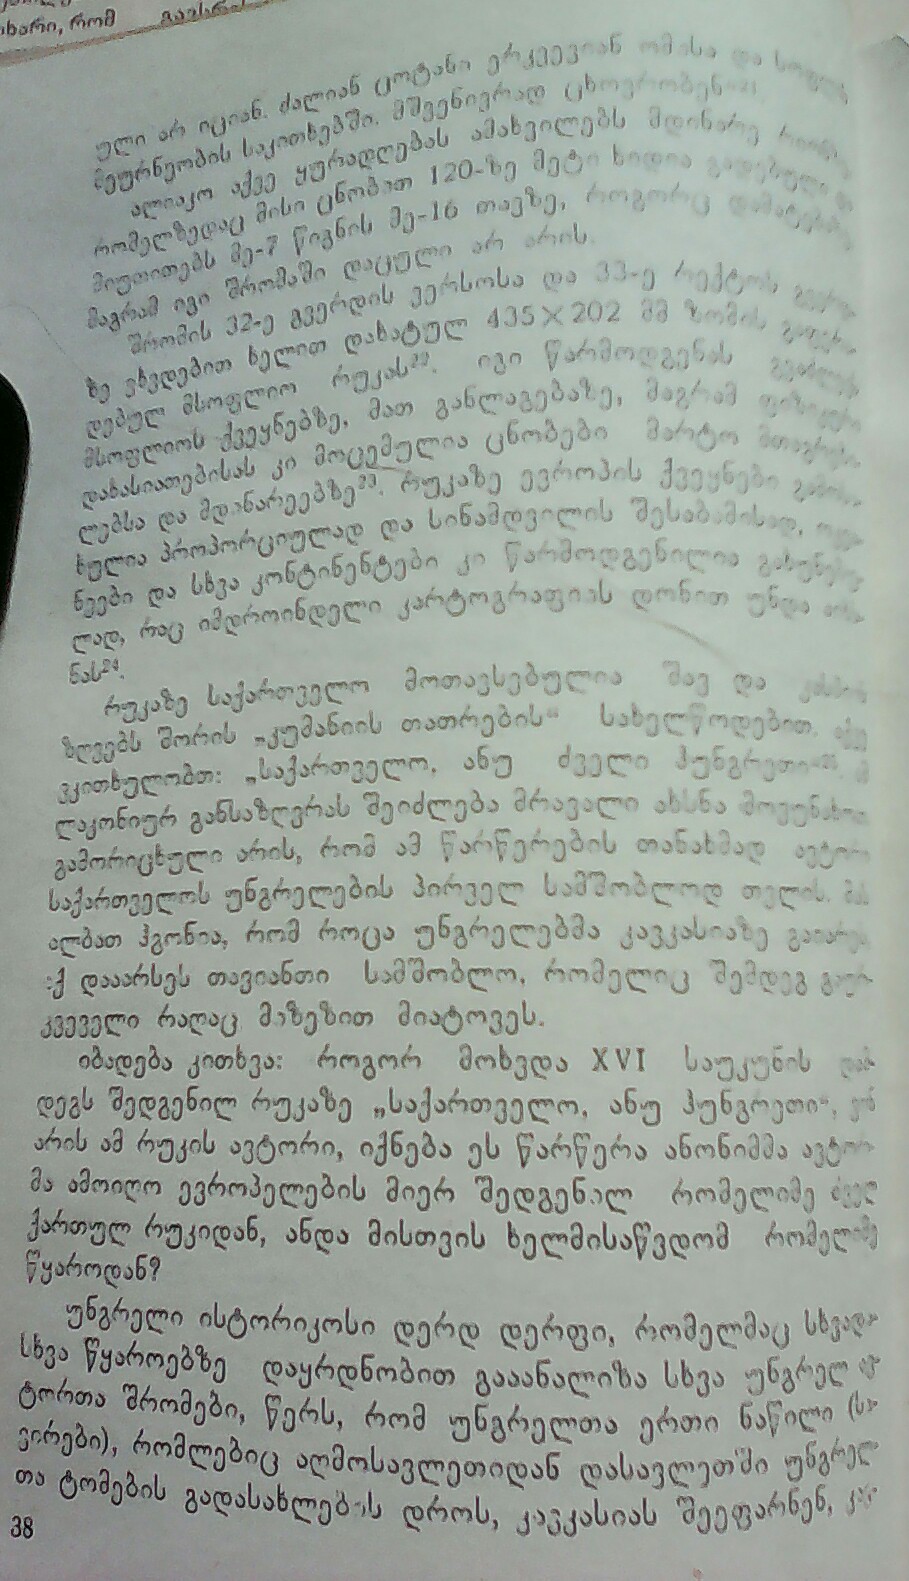 ხარი, რომ
ული არ იციან. ძალიან ცოტანი ერკვევიან ომისა და სოფლ
მეურნეობის საკითხებში. მშვენივრად ცხოვრობენ
ალიაკო აქვე ყურადღებას ამახვილებს მდინარე
რომელზედაც მისი ცნობით 120-ზე მეტი ხიდია გადებული
მიუთითებს მე-7 წიგნის მე-16 თავზე, როგორც დამატებას
მაგრამ იგი შრომაში დაცული არ არის.
შრომის 32-ე გვერდის ვერსოსა და 33-ე რექტოს
ზე ვხვდებით ხელით დახატულ 435×202 მმ ზომის
დებულ მსოფლიო რუკას²². იგი წარმოდგენას გვაძლევს
მსოფლიოს ქვეყნებზე, მათ განლაგებაზე, მაგრამ ფიზიკური
დახასიათებისას კი მოცემულია ცნობები მარტო მთაგრე
ლებსა და მდინარეებზე²³. რუკაზე ევროპის ქვეყნები გამოსა
ხულია პროპორციულად და სინამდვილის შესაბამისად,
ნეები და სხვა კონტინენტები კი წარმოდგენილია
ლად, რაც იმდროინდელი კარტოგრაფიის დონით უნდა
ნას²⁴.
რუკაზე საქართველო მოთავსებულია შავ და კასპიის
ზღვებს შორის „კუმანიის თათრების“ სახელწოდებით. იქვე
ვკითხულობთ: „საქართველო, ანუ ძველი ჰუნგრეთი“
ლაკონიურ განსაზღვრას შეიძლება მრავალი ახსნა მოვუნახოთ
გამორიცხული არის, რომ ამ წარწერების თანახმად ავტორი
საქართველოს უნგრელების პირველ სამშობლოდ თვლის.
ალბათ ჰგონია, რომ როცა უნგრელებმა კავკასიაზე გაიარეს
იქ დააარსეს თავიანთი სამშობლო, რომელიც შემდეგ გაურ
კვეველი რაღაც მიზეზით მიატოვეს.
იბადება კითხვა: როგორ მოხვდა XVI საუკუნის
დეგს შედგენილ რუკაზე „საქართველო, ანუ ჰუნგრეთი“, ვინ
არის ამ რუკის ავტორი, იქნება ეს წარწერა ანონიმმა ავტორ
მა ამოიღო ევროპელების მიერ შედგენილ რომელიმე ძველ
ქართულ რუკიდან, ანდა მისთვის ხელმისაწვდომ რომელიმე
წყაროდან?
უნგრელი ისტორიკოსი დერდ დერფი, რომელმაც სხვადა
სხვა წყაროებზე დაყრდნობით გააანალიზა სხვა უნგრელ ავ
ტორთა შრომები, წერს, რომ უნგრელთა ერთი ნაწილი (სა
ვირები), რომლებიც აღმოსავლეთიდან დასავლეთში უნგრელ
თა ტომების გადასახლების დროს, კავკასიას შეეფარნენ,
38